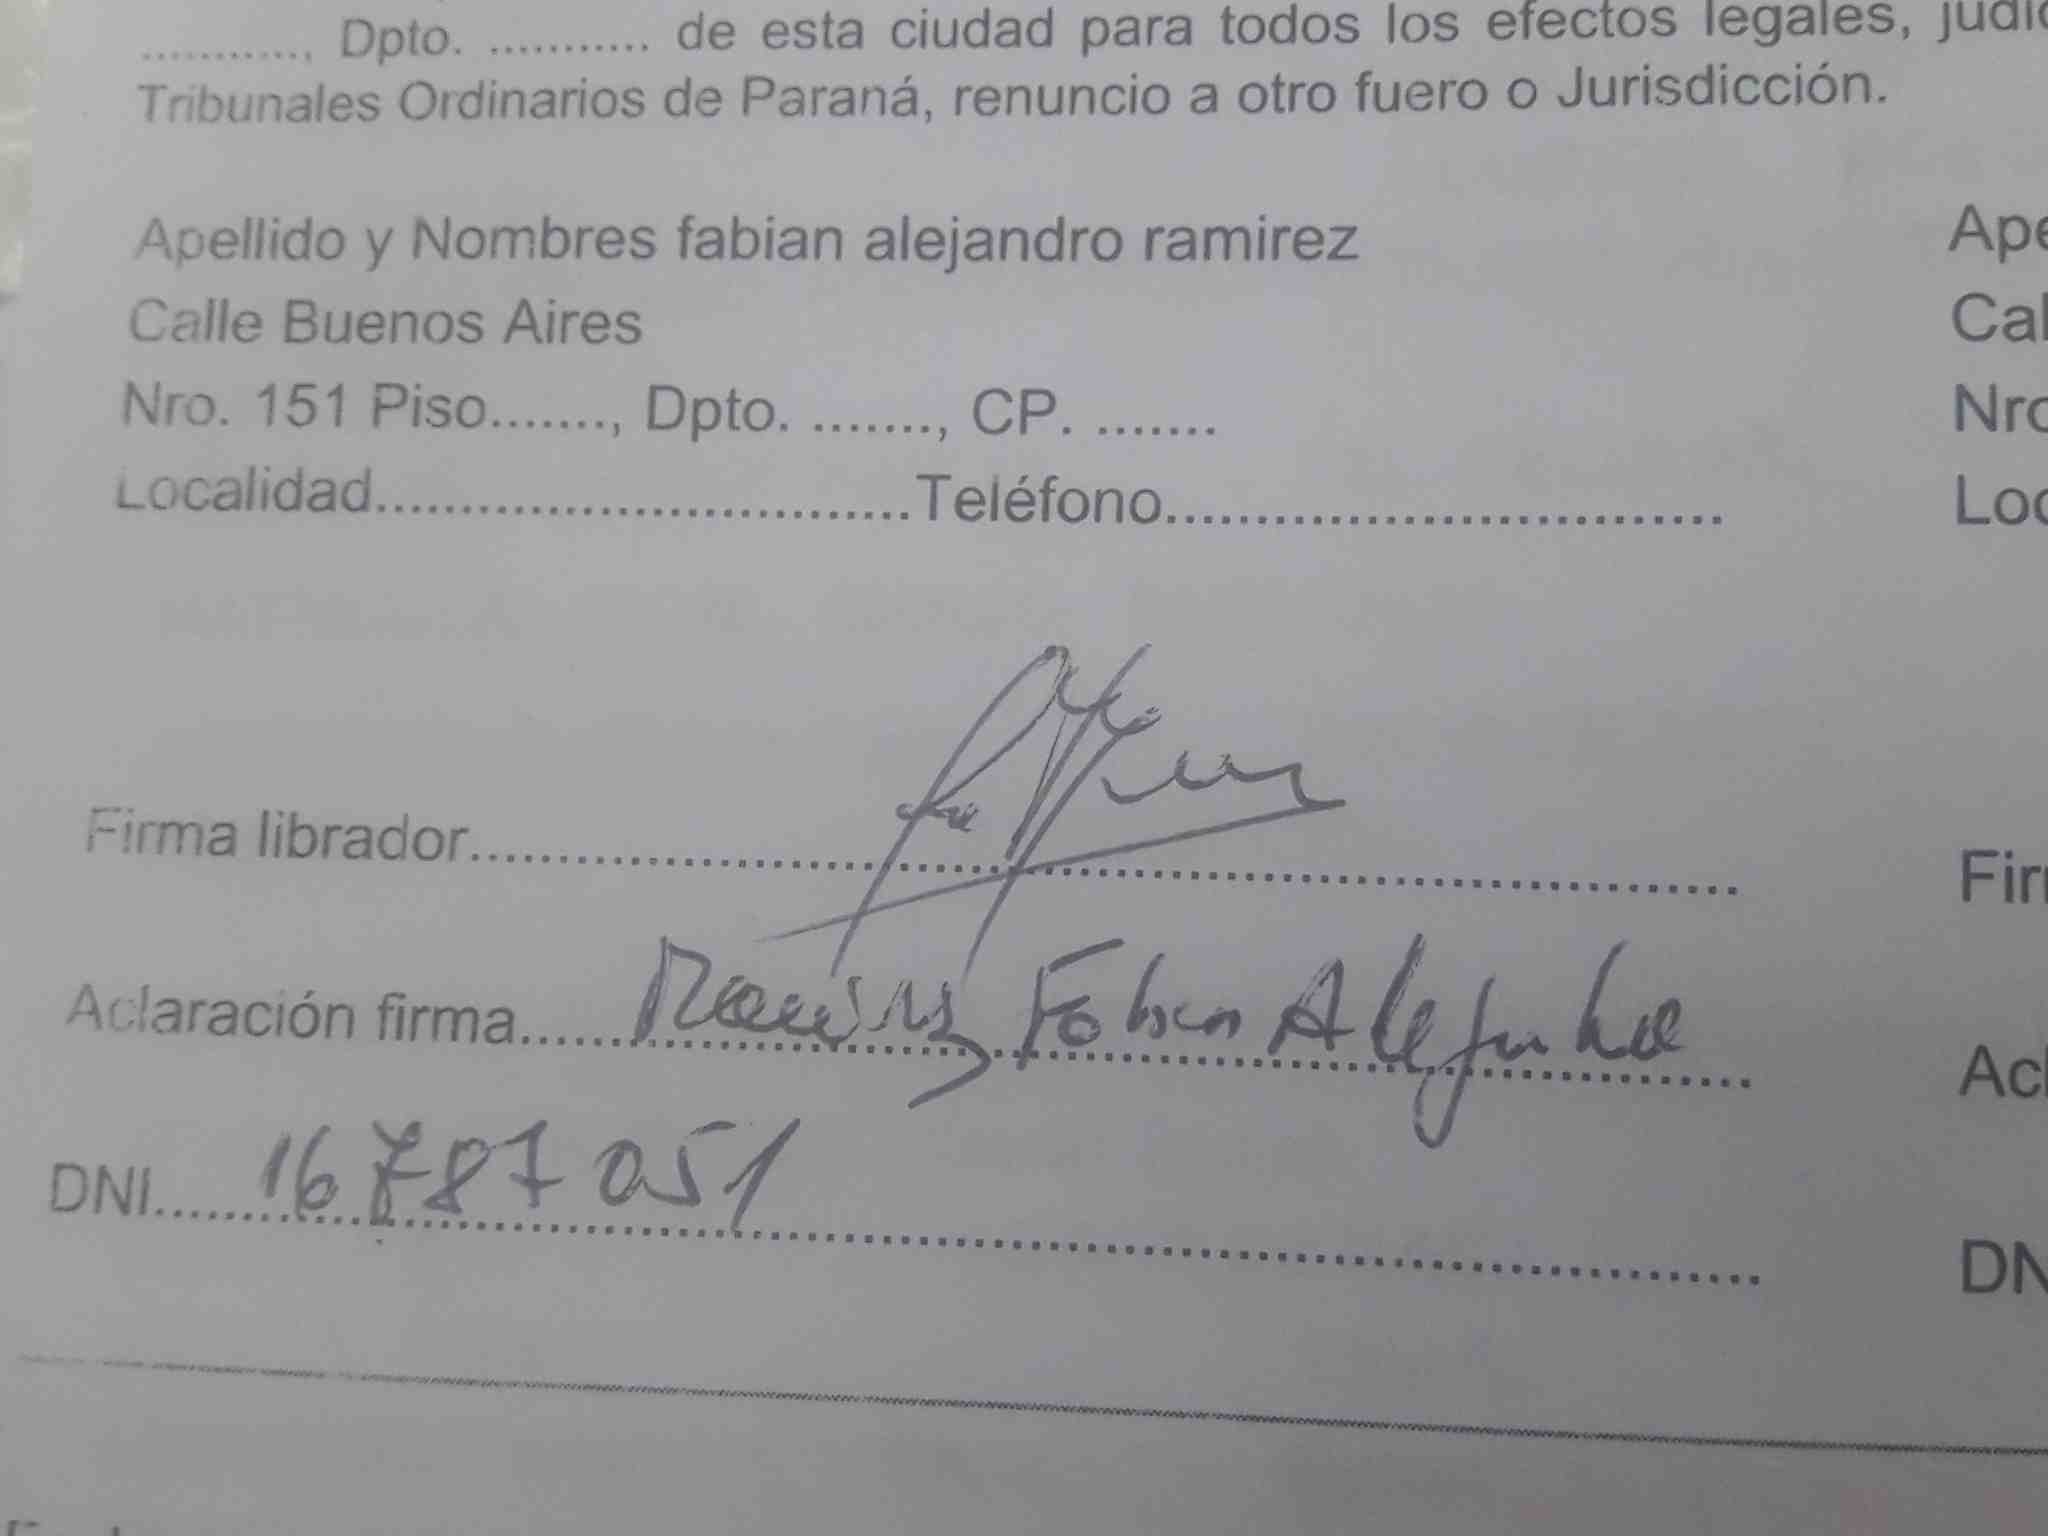 ............, Dpto. ........... de esta ciudad para todos los efectos legales,
Tribunales Ordinarios de Paraná, renuncio a otro fuero o Jurisdicción.
Apellido y Nombres fabian alejandro ramirez
Calle Buenos Aires
Nro. 151 Piso......., Dpto. ......., CP. .......
Localidad..............................Teléfono...............................
Firma librador......................................................................
Aclaración firma......Ramirez Fabian Alejandro
DNI......16787051